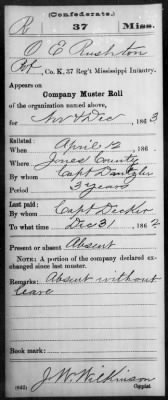 (Confederate.)
R 37 Miss.
O E Rushton
Pvt, Co. K, 37 Reg't Mississippi Infantry.
Appears on
Company Muster Roll
of the organization named above,
for Nov & Dec, 1863
Enlisted:
When April 12, 186
Where Jones County
By whom Capt Dantzler
Period 3 years
Last paid:
By whom Capt Decker
To what time Dec 31, 1862
Present or absent Absent
NOTE.—A portion of the company declared exchanged
changed since last muster.
Remarks: Absent without
leave
Book mark:
J. W. Wilkinson
(642) Copyist.